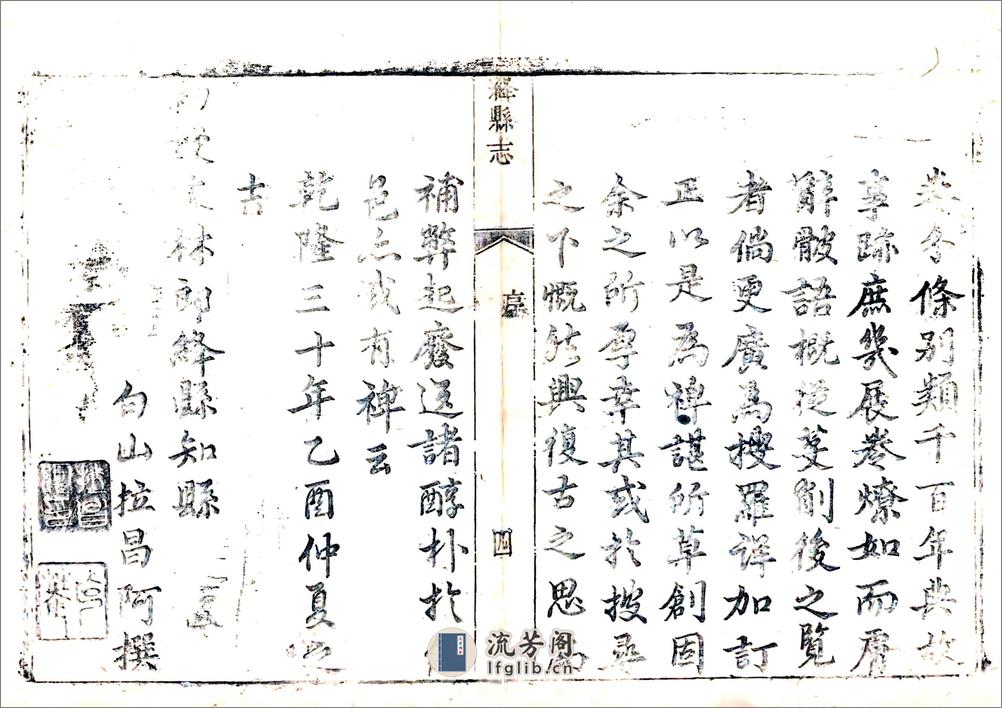 分條別類千百年典故
事跡庶幾展卷燎如而膚
辭骰語概從芟削後之覽
者倘更廣為搜羅詳加訂
正以是為裨諶所草創固
余之所厚幸其或於披尋
之下慨然興復古之思
絳縣志
序
四
補弊起廢還諸醇朴於
邑亦或有裨云
乾隆三十年乙酉仲夏之
吉
文林郎絳縣知縣
白山拉昌阿撰
流芳阁
lfglib.cn